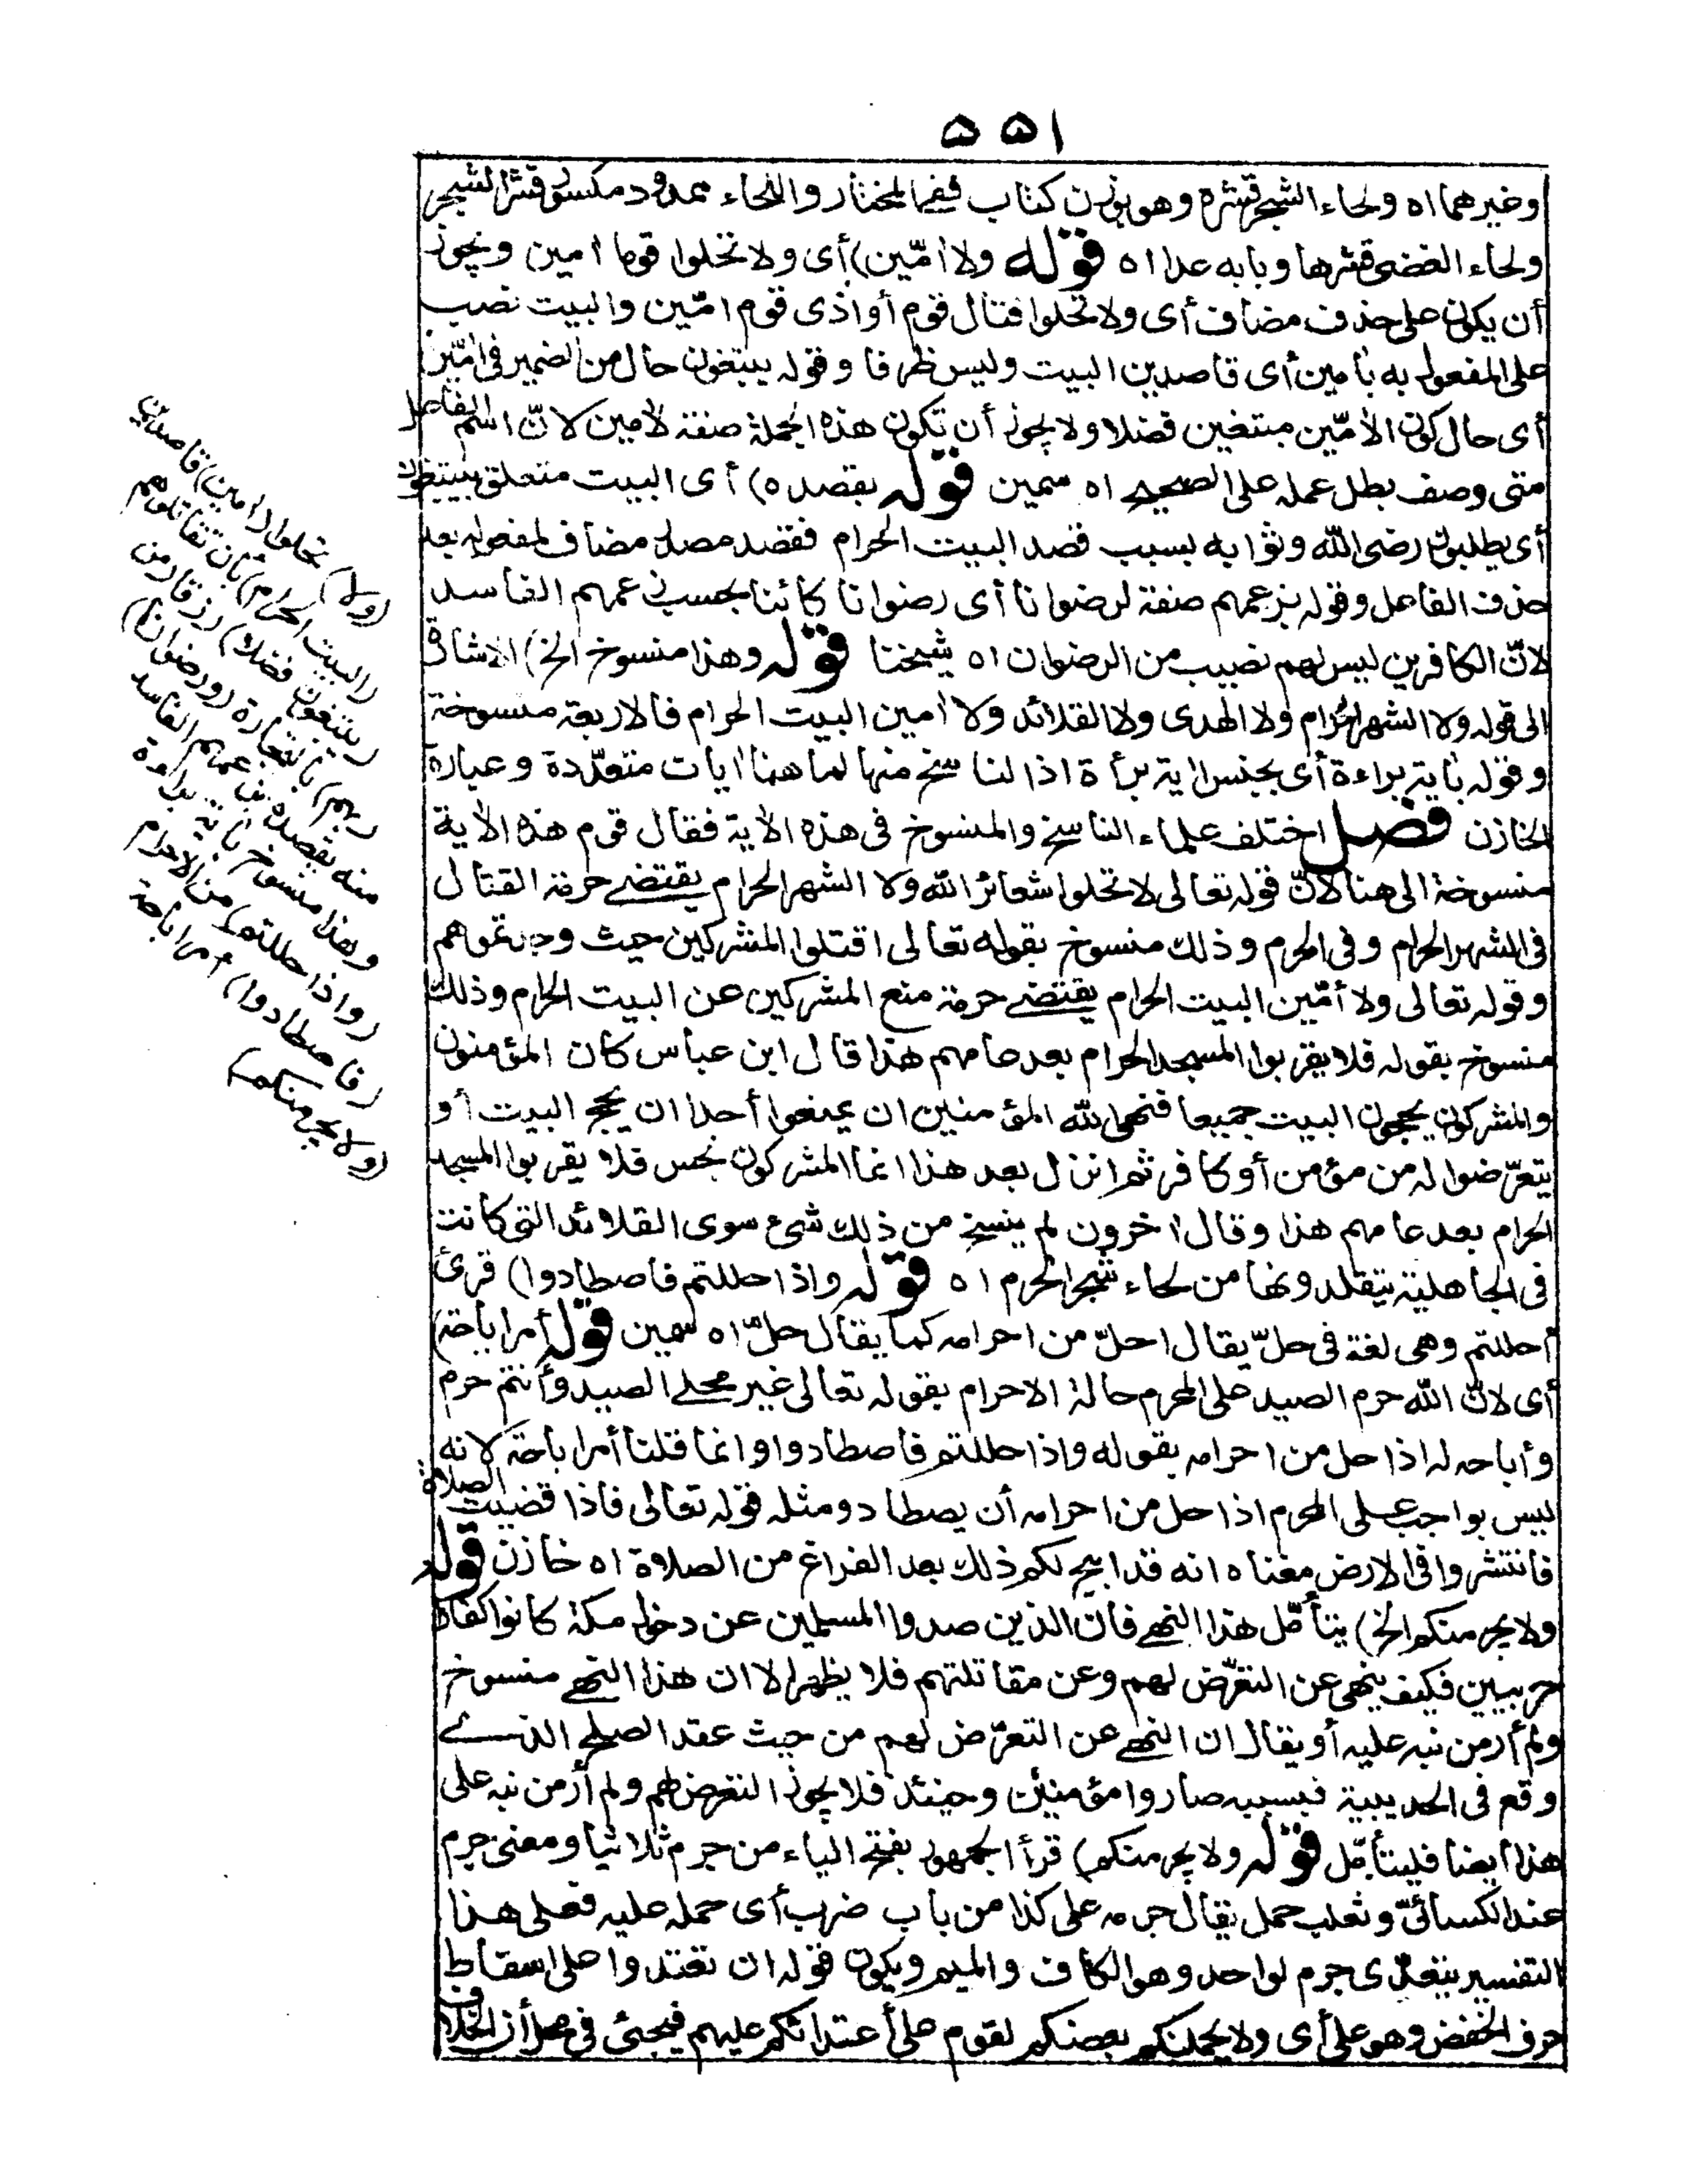 ٥٥١
وغيرهما اه ولحاء الشجر قشره وهو بوزن كتاب ففى المختار واللحاء ممدود مكسور قشر الشجر
ولحاء العصى قشرها وبابه عدا اه قوله ولا آمّين) أى ولا تحلوا قوما آمين ويجوز
أن يكون على حذف مضاف أى ولا تحلوا قتال قوم أو أذى قوم آمّين والبيت نصب
على المفعول به بآمين أى قاصدين البيت وليس ظرفا وقوله يبتغون حال من الضمير فى آمّين
أى حال كون الآمّين مبتغين فضلا ولا يجوز أن تكون هذه الجملة صفة لآمين لانّ اسم الفاعل
متى وصف بطل عمله على الصحيح اه سمين قوله بقصده) أى البيت متعلق بيبتغون
أى يطلبون رضى الله وثوابه بسبب قصد البيت الحرام فقصد مصدر مضاف لمفعوله بعد
حذف الفاعل وقوله بزعمهم صفة لرضوانا أى رضوانا كائنا بحسب زعمهم الفاسد
لانّ الكافرين ليس لهم نصيب من الرضوان اه شيخنا قوله وهذا منسوخ الخ) الاشارة
الى قوله ولا الشهر الحرام ولا الهدى ولا القلائد ولا آمين البيت الحرام فالاربعة منسوخة
وقوله بآية براءة أى بجنس آية براءة اذ الناسخ منها لما هنا آيات متعدّدة وعبارة
الخازن فصل اختلف علماء الناسخ والمنسوخ فى هذه الآية فقال قوم هذه الآية
منسوخة الى هنا لانّ قوله تعالى لا تحلوا شعائر الله ولا الشهر الحرام يقتضى حرمة القتال
فى الشهر الحرام وفى الحرم وذلك منسوخ بقوله تعالى اقتلوا المشركين حيث وجدتموهم
وقوله تعالى ولا آمّين البيت الحرام يقتضى حرمة منع المشركين عن البيت الحرام وذلك
منسوخ بقوله فلا يقربوا المسجد الحرام بعد عامهم هذا قال ابن عباس كان المؤمنون
والمشركون يحجون البيت جميعا فنهى الله المؤمنين ان يمنعوا أحدا ان يحج البيت أو
يتعرّضوا له من مؤمن أو كافر ثم انزل بعد هذا انما المشركون نجس فلا يقربوا المسجد
الحرام بعد عامهم هذا وقال آخرون لم ينسخ من ذلك شىء سوى القلائد التى كانت
فى الجاهلية يتقلدونها من لحاء شجر الحرم اه قوله واذا حللتم فاصطادوا) قرئ
أحللتم وهى لغة فى حلّ يقال احلّ من احرامه كما يقال حلّ اه سمين قوله أمر اباحة)
أى لانّ الله حرم الصيد على المحرم حالة الاحرام بقوله تعالى غير محلى الصيد وأنتم حرم
وأباحه له اذا حل من احرامه بقوله واذا حللتم فاصطادوا وانما قلنا أمر اباحة لانه
ليس بواجب على المحرم اذا حل من احرامه أن يصطاد ومثله قوله تعالى فاذا قضيت الصلاة
فانتشروا فى الارض معناه انه قد ابيح لكم ذلك بعد الفراغ من الصلاة اه خازن قوله
ولا يجرمنكم الخ) يتأمّل هذا النهى فان الذين صدوا المسلمين عن دخول مكة كانوا كفارا
حربيين فكيف ينهى عن التعرّض لهم وعن مقاتلتهم فلا يظهر الا ان هذا النهى منسوخ
ولم أر من نبه عليه أو يقال ان النهى عن التعرّض لهم من حيث عقد الصلح الذى
وقع فى الحديبية فبسببه صاروا مؤمنين وحينئذ فلا يجوز التعرض لهم ولم أر من نبه على
هذا أيضا فليتأمّل قوله ولا يجرمنكم) قرأ الجمهور بفتح الياء من جرم ثلاثيا ومعنى جرم
عند الكسائىّ وثعلب حمل يقال جرمه على كذا من باب ضرب أى حمله عليه فعلى هذا
التفسير يتعدّى جرم لواحد وهو الكاف والميم ويكون قوله ان تعتدوا على اسقاط
حرف الخفض وهو على أى ولا يحملنكم بغضكم لقوم على اعتدائكم عليهم فيجئ فى محل أن الخلاف
(ولا) تحلوا (آمين) قاصدين
(البيت الحرام) بأن تقاتلوهم
(يبتغون فضلا) رزقا (من
ربهم) بالتجارة (ورضوانا)
منه بقصده بزعمهم الفاسد
وهذا منسوخ بآية براءة
(واذا حللتم) من الاحرام
(فاصطادوا) أمر اباحة
(ولا يجرمنكم)